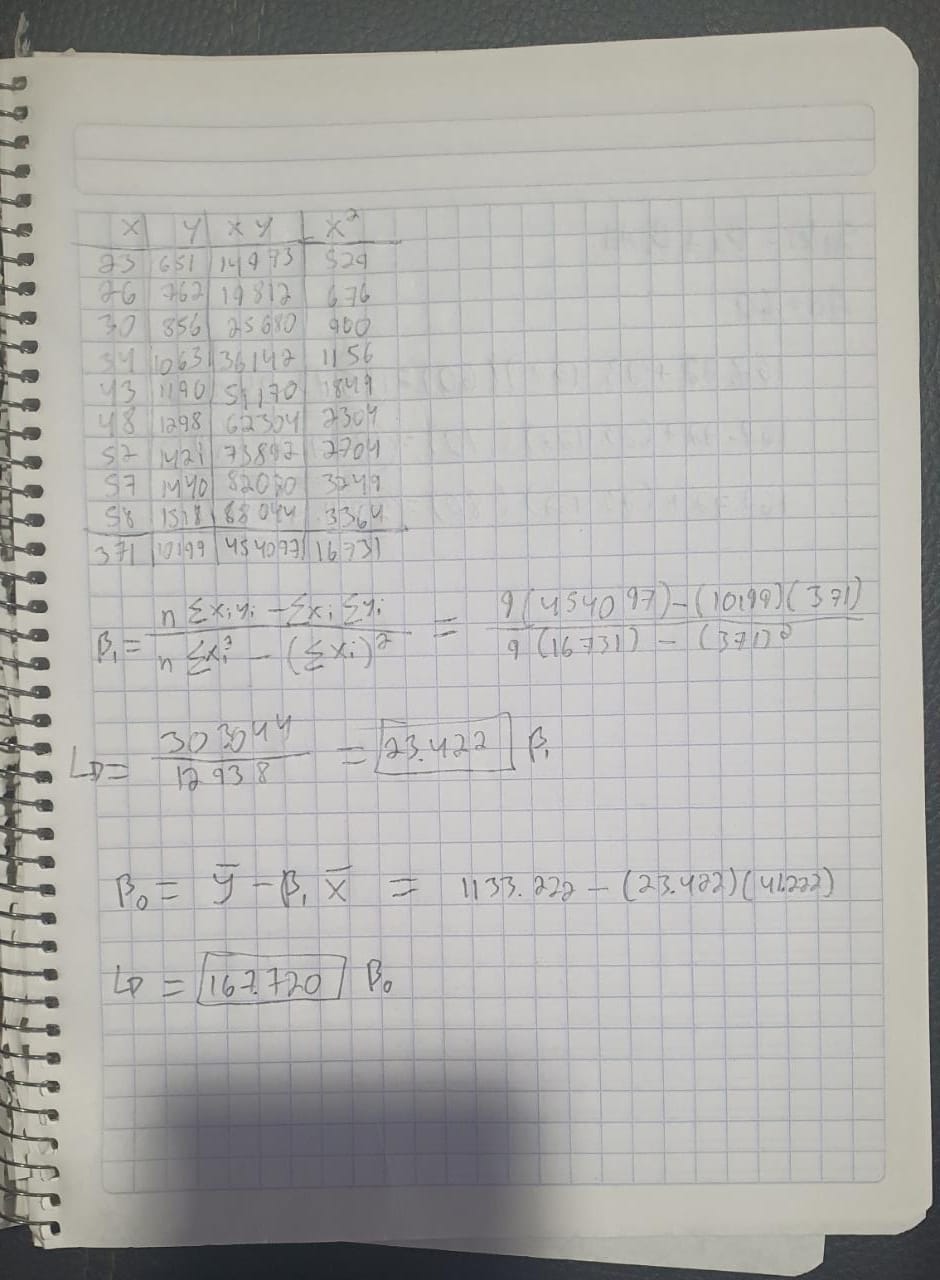 x y xy x²
23 651 14973 529
26 762 19812 676
30 856 25680 900
34 1063 36142 1156
43 1190 51170 1849
48 1298 62304 2304
52 1421 73892 2704
57 1440 82080 3249
58 1518 88044 3364
371 10199 454097 16731
β₁ = n Σxiyi − Σxi Σyi / n Σxi² − (Σxi)² = 9(454097) − (10199)(371) / 9(16731) − (371)²
↳ = 303044 / 12938 = 23.422 β₁
β₀ = ȳ − β₁ x̄ = 1133.222 − (23.422)(41.222)
↳ = 167.720 β₀